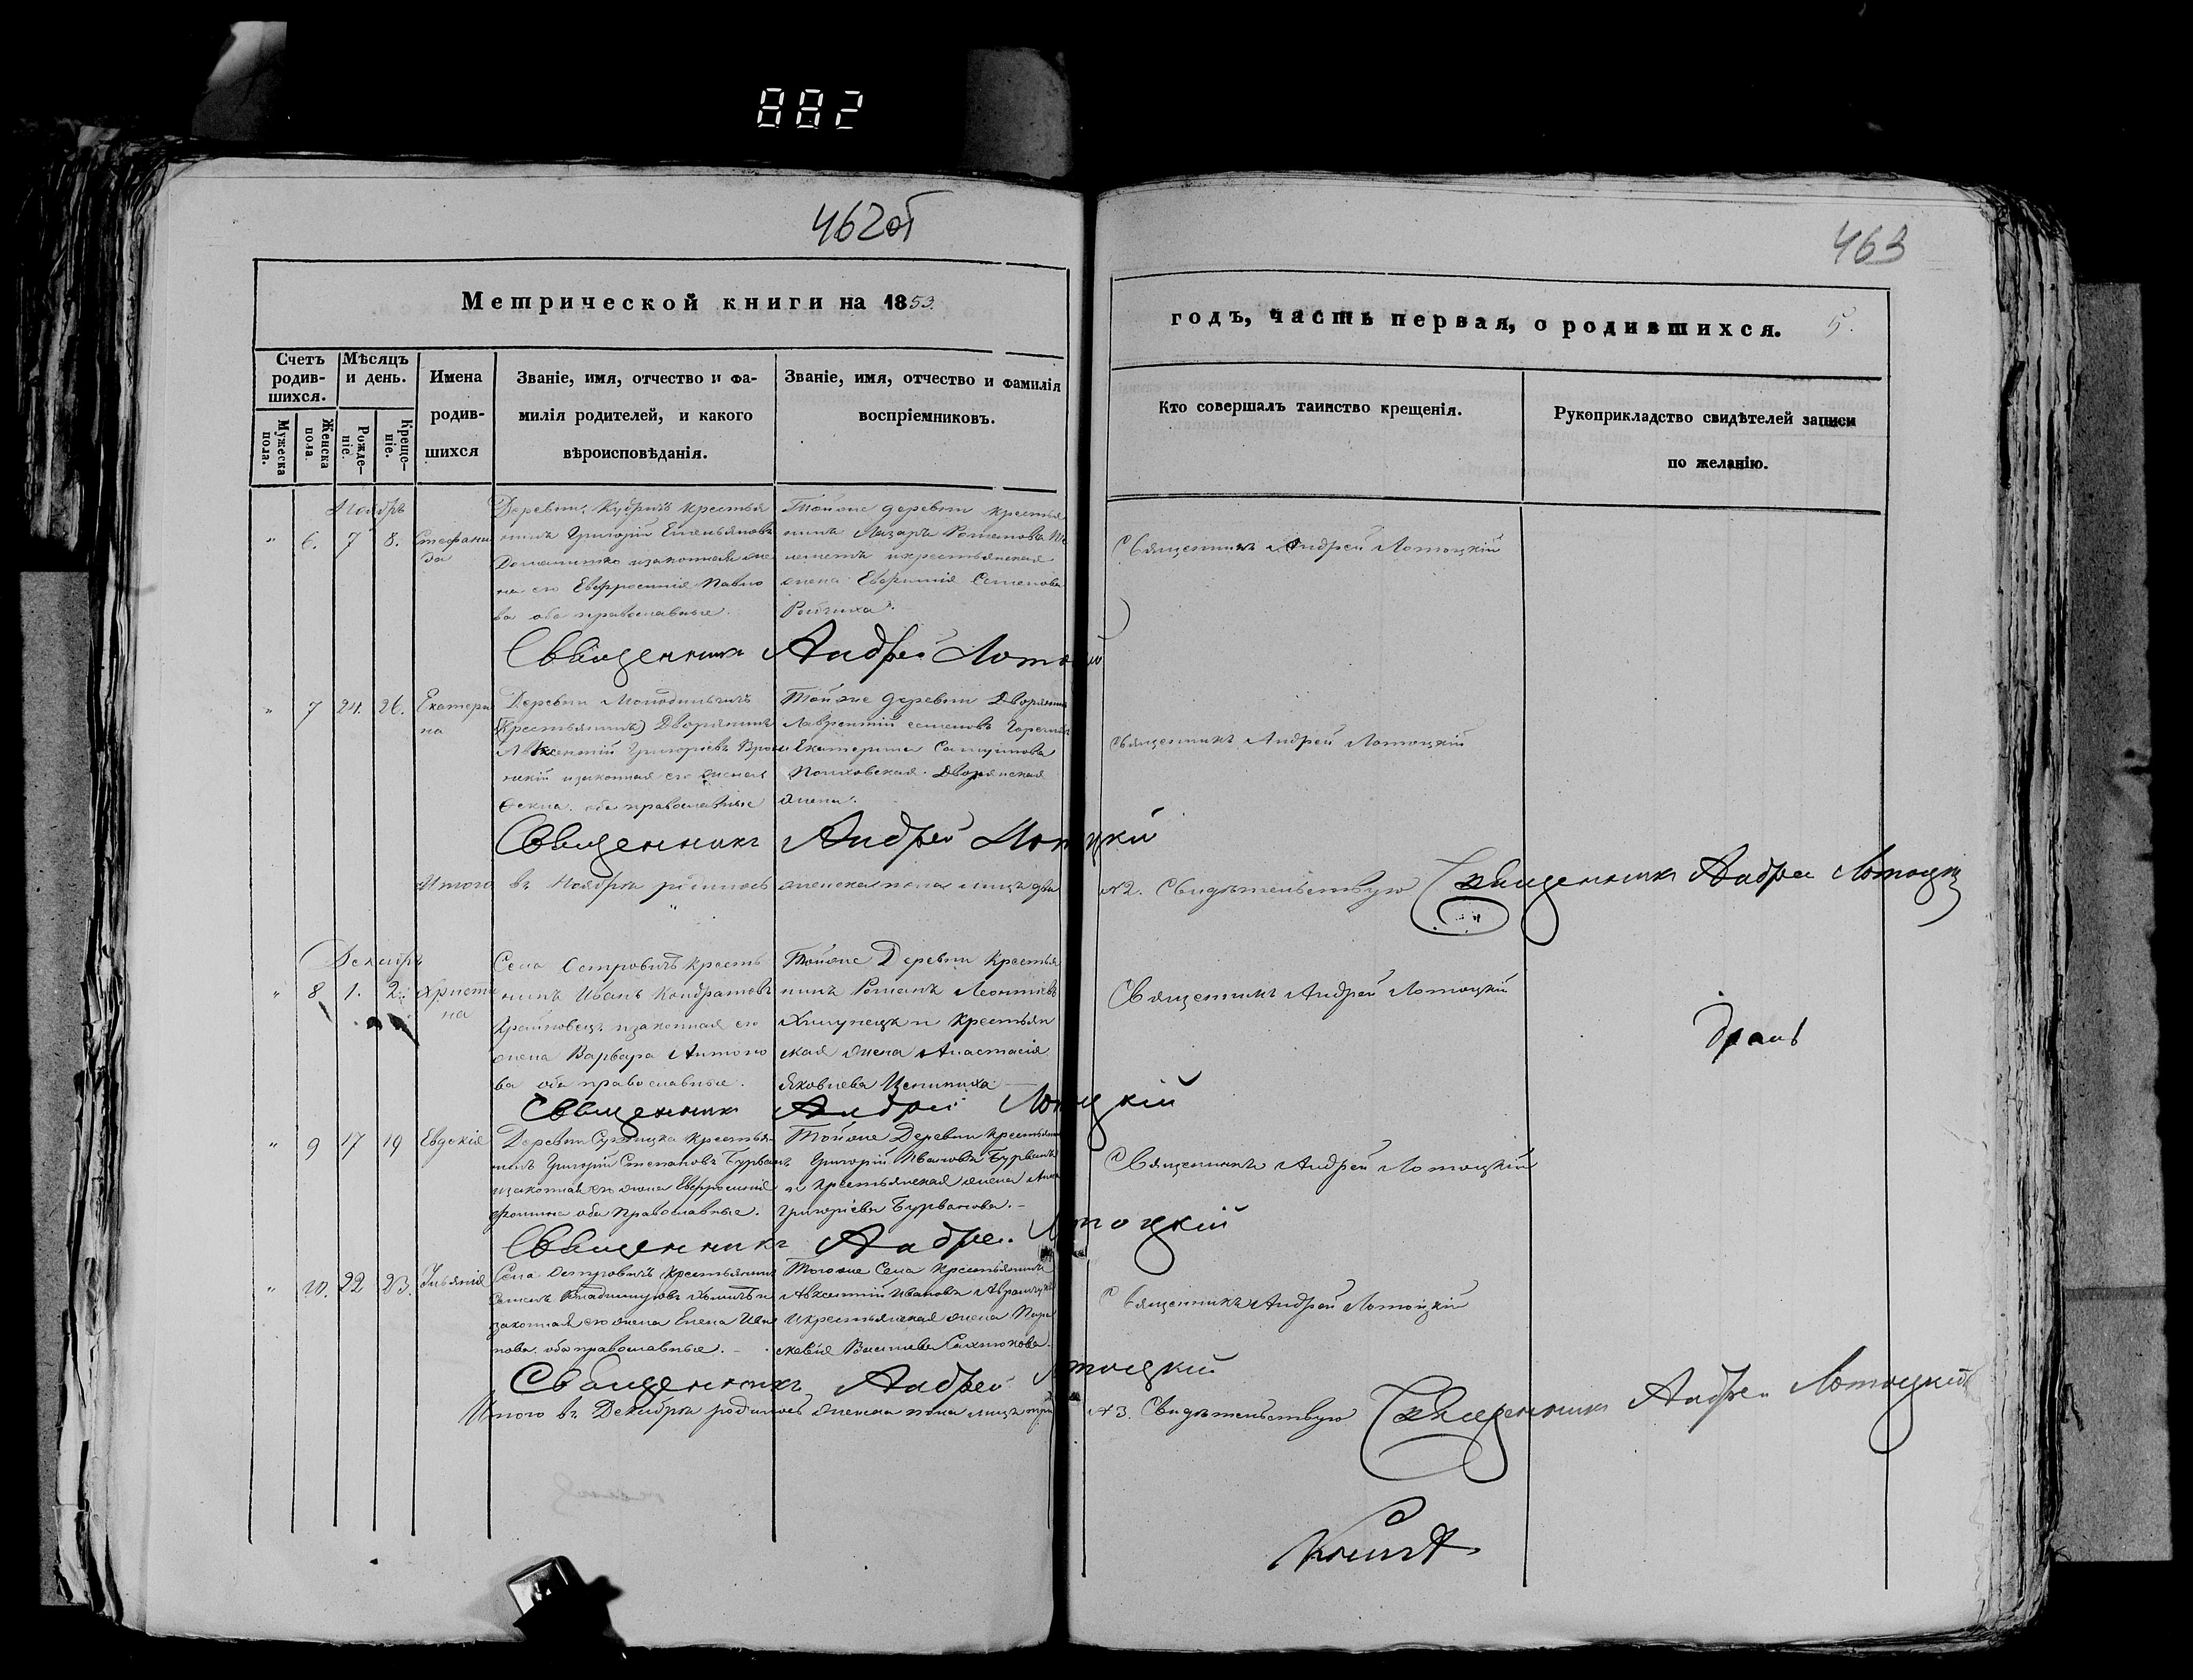 882
462об
463
Метрической книги на 1853.
годъ, часть первая, о родившихся. 5.
Счетъ родившихся.
Мѣсяцъ и день.
Имена родившихся
Званіе, имя, отчество и фамилія родителей, и какого вѣроисповѣданія.
Званіе, имя, отчество и фамилія воспріемниковъ.
Кто совершалъ таинство крещенія.
Рукоприкладство свидѣтелей записи по желанію.
Мужеска пола.
Женска пола.
Рожденіе.
Крещеніе.
Ноябрь
" 6. 7 8. Стефанида
Деревни Кудричъ крестья
нинъ Григорій Емельяновъ
изаконная же
на его Евфросинія Павло
ва оба православные.
Тойже деревни крестья
нинъ Лазарь Романовъ
икрестьянская
жена Евфимія Семенова
Священникъ Андрей Лотоцкій
Священникъ Андрей Лотоцкій
" 7 24. 26. Екатерина
Деревни
(Крестьянинъ) Дворянинъ
Авксентій Григорьевъ
изаконная его жена
Ѳекла оба православные
Тойже деревни Дворянинъ
Лаврентій Семеновъ
и Екатерина
Дворянская
жена.
Священникъ Андрей Лотоцкій
Священникъ Андрей Лотоцкій
Итого въ Ноябрѣ родилось женска пола лицъ два
№2. Свидѣтельствую Священникъ Андрей Лотоцкій
Декабрь
" 8 1. 2. Христина
Села Островичъ крестья
нинъ Иванъ Кондратовъ
изаконная его
жена Варвара Антоно
ва оба православные.
Тойже Деревни Крестья
нинъ Романъ Леонтіевъ
и Крестьян
ская жена Анастасія
Яковлева
Священникъ Андрей Лотоцкій
Священникъ Андрей Лотоцкій
" 9 17 19 Евдокія
Деревни Крестья
нинъ Григорій Степановъ Бурванъ
изаконная его жена Евфросинія
оба Православные.
Тойже Деревни Крестьянинъ
Григорій Ивановъ Бурванъ
и Крестьянская жена Анна
Григорьева Бурванова.
Священникъ Андрей Лотоцкій
Священникъ Андрей Лотоцкій
" 10. 22 23. Ульянія
Села Островичъ Крестьянинъ
Семенъ и
законная его жена Елена Ива
нова оба православные.
Тогоже Села Крестьянинъ
Авксентій Ивановъ
икрестьянская жена Пара
скевія
Священникъ Андрей Лотоцкій
Священникъ Андрей Лотоцкій
Итого въ Декабрѣ родилось женска пола лицъ три
№3. Свидѣтельствую Священникъ Андрей Лотоцкій